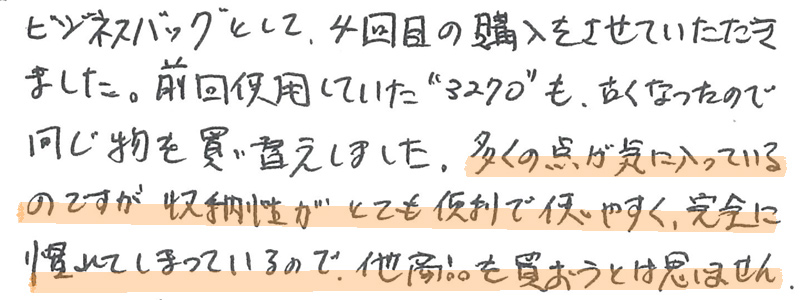 ビジネスバッグとして、4回目の購入をさせていただき
ました。前回使用していた“3270”も、古くなったので
同じ物を買い替えしました。多くの点が気に入っている
のですが収納性がとても便利で使いやすく、完全に
慣れてしまっているので、他商品を買おうとは思いません。